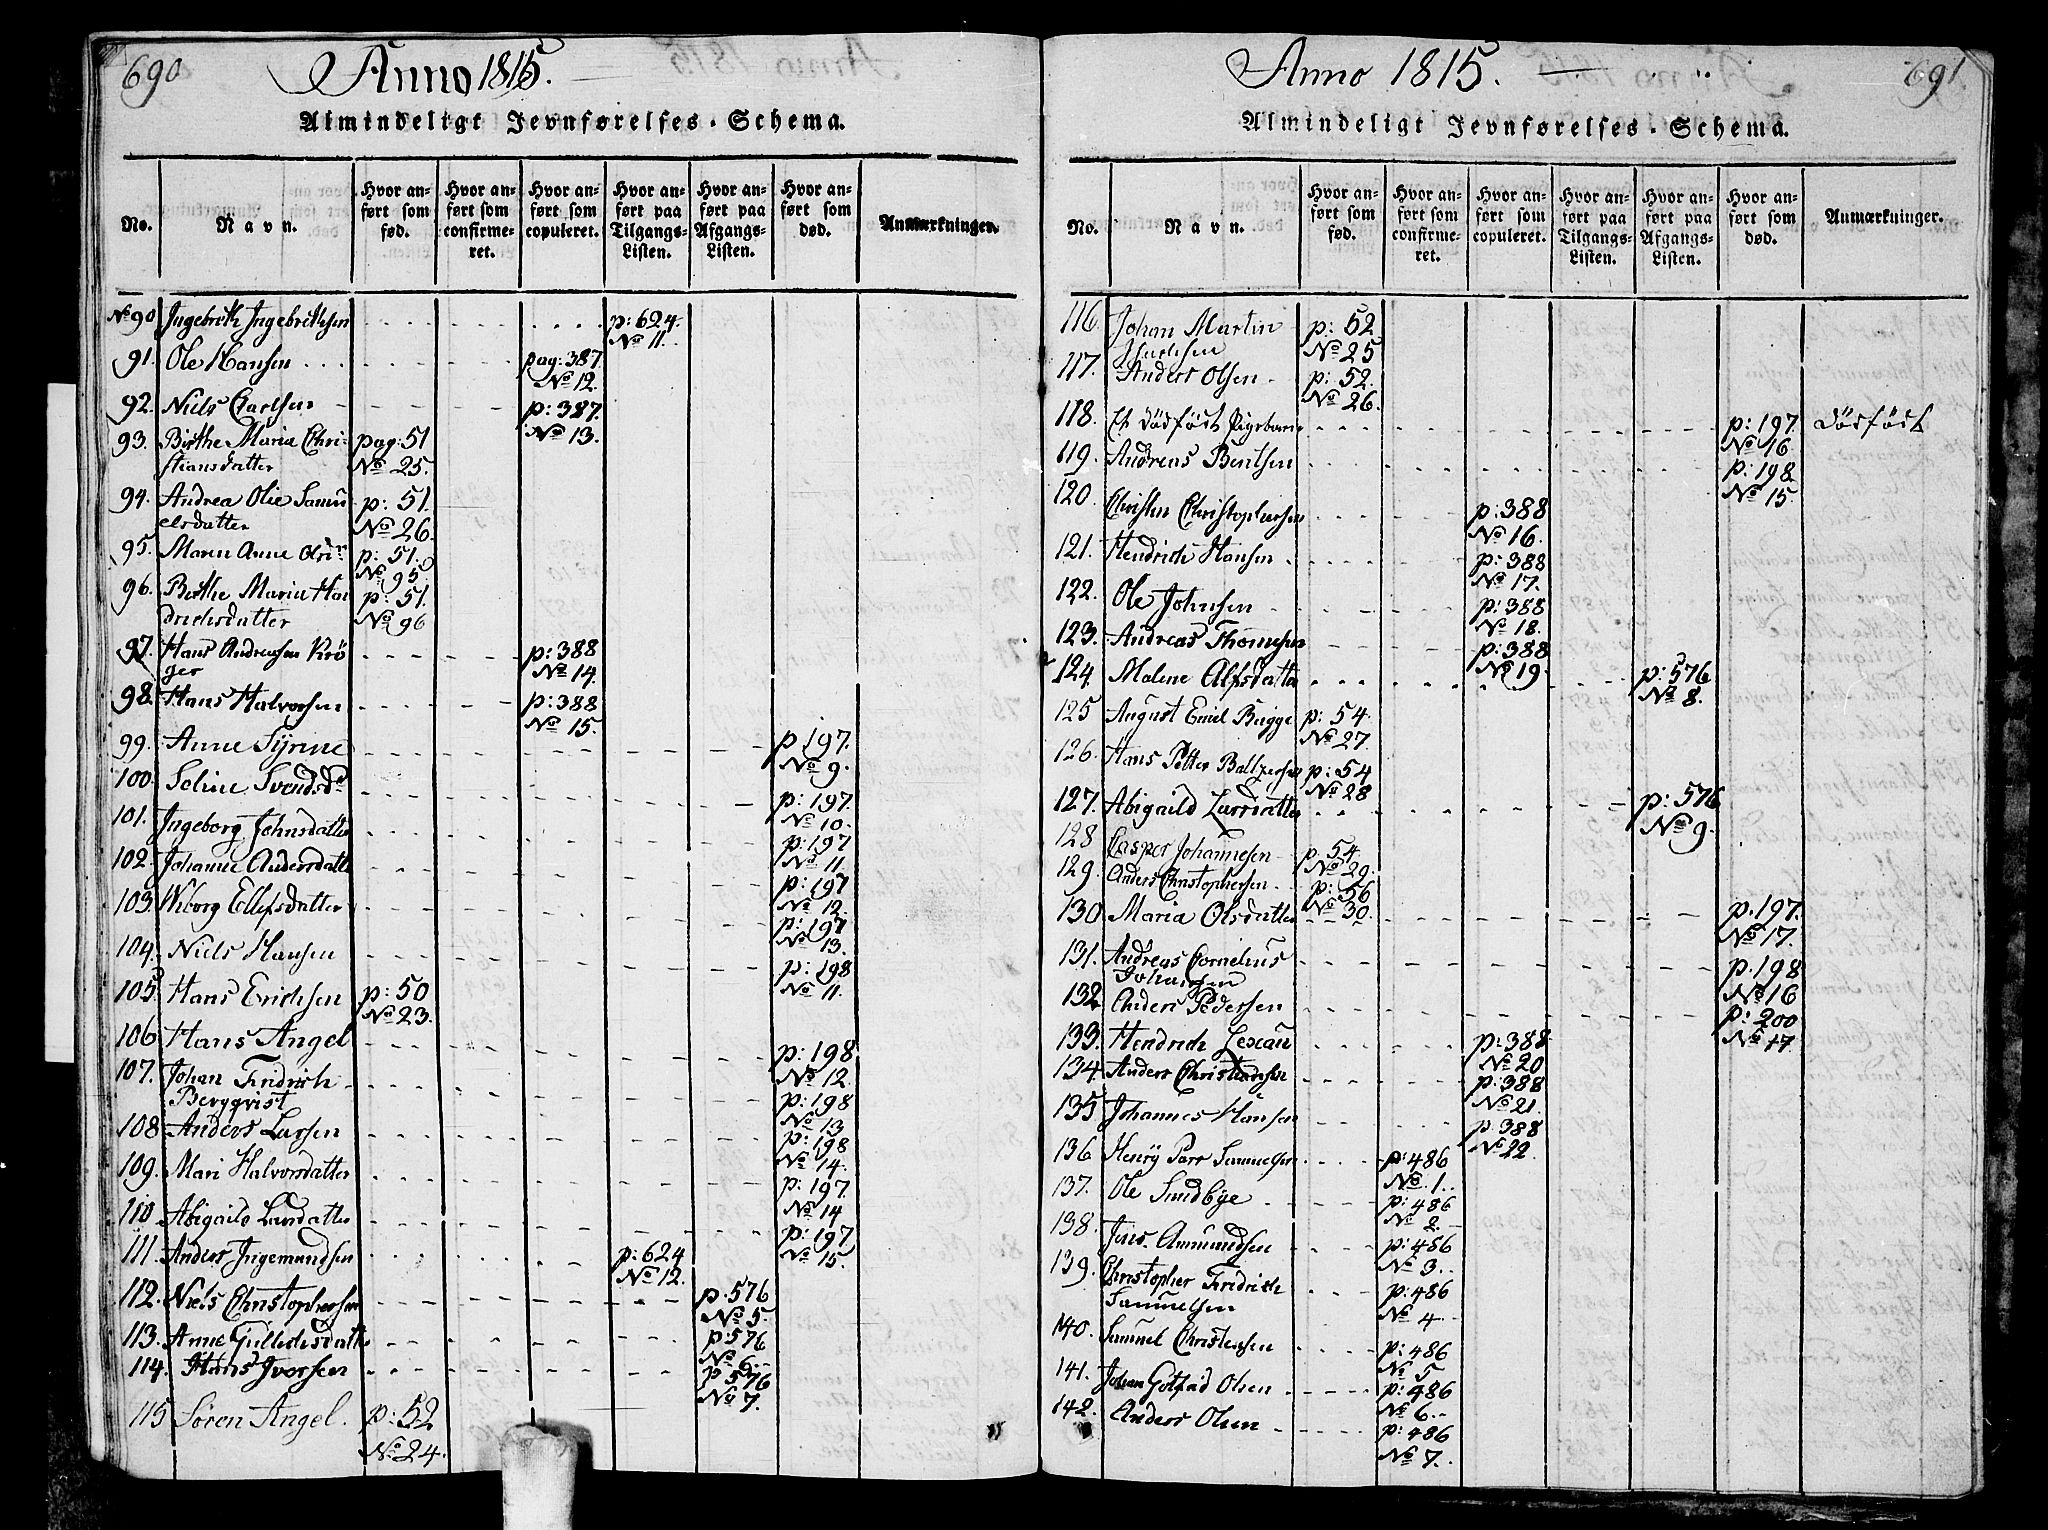 690
Anno 1815.
Almindeligt Jevnførelses-Schema.
No.
Navn.
Hvor an-
ført som
fød.
Hvor an-
ført som
confirme-
ret.
Hvor an-
ført som
copuleret.
Hvor an-
ført paa
Tilgangs-
Listen.
Hvor an-
ført paa
Afgangs-
Listen.
Hvor an-
ført som
død.
Anmærkninger.
No 90 Ingebrith Ingebrithsen p: 624.
No 11.
91. Ole Hansen pag: 387
No 12.
92. Niels Carlsen p: 387.
No 13.
93. Birthe Maria Chri- pag: 51
stiansdatter No 25.
94. Andrea Olie Samu p: 51.
elsdatter No 26.
95. Maren Anne Olsdr p: 51.
No 95
96. Birthe Maria Hen p: 51.
drichsdatter No 96
97. Hans Andreasen Krö p: 388
ger No 14.
98. Hans Halvorsen p: 388
No 15.
99. Anne Syrine p 197.
No 9.
100. Seline Svendsdr p: 197.
No 10.
101. Ingeborg Johnsdatter p: 197
No 11.
102. Johanne Andersdatter p: 197
No 12.
103. Wiborg Ellefsdatter p: 197
No 13.
104. Niels Hansen p: 198
No 11.
105. Hans Erichsen p: 50
No 23.
106 Hans Angel p: 198
No 12.
107. Johan Fridrich p: 198
Bergqvist No 13
108 Anders Larsen p: 198
No 14.
109. Mari Halvorsdatter p: 197.
No 14
110 Abigaild Larsdatter p: 197
No 15.
111. Anders Ingemundsen p: 624
No 12.
112. Niels Christophersen p. 576
No 5.
113. Anne Gulledesdatter p: 576
No 6.
114. Hans Iversen p 576
No 7.
115 Søren Angel. p: 52
No 24.
691
Anno 1815.
Almindeligt Jevnførelses-Schema.
No.
Navn.
Hvor an-
ført som
fød.
Hvor an-
ført som
confirme-
ret.
Hvor an-
ført som
copuleret.
Hvor an-
ført paa
Tilgangs-
Listen.
Hvor an-
ført paa
Afgangs-
Listen.
Hvor an-
ført som
død.
Anmærkninger.
116. Johan Martin p: 52
No 25
117. Anders Olsen p: 52.
No 26.
118. Et dödfödt Pigebarn p: 197. Dödfödt
No 16.
119. Andreas Bentsen p: 198
No 15.
120. Christen Christophersen p: 388
No 16.
121. Hendrich Hansen p: 388
No 17.
122. Ole Johnsen p: 388
No 18.
123. Andreas Thomesen p: 388
No 19.
124. Malene Alfsdatter p: 576
No 8.
125 August Emil Bugge p: 54.
No 27.
126. Hans Petter Baltzersen p: 54
No 28
127. Abigaild Larsdatter p: 576
No 9.
128 Casper Johannesen p 54.
No 29.
129. Anders Christophersen p: 56
No 30.
130 Maria Olsdatter p. 197.
No 17.
131. Andreas Cornelius p. 198
Johansen No 16
132. Anders Pedersen p: 200
No 17.
133. Hendrich Lexau p: 388
No 20
134. Anders Christiansen p: 388
No 21.
135 Johannes Hansen p: 388
No 22.
136 Henry Parr Samuelsen p: 486
No 1.
137. Ole Sundbye p: 486
No 2.
138. Jens Amundsen p: 486
No 3.
139. Christopher Fridrich p: 486
Samuelsen No 4
140. Samuel Christensen p: 486
No 5
141. Johan Gotfrid Olsen p: 486
No 6.
142. Anders Olsen p: 486
No 7.